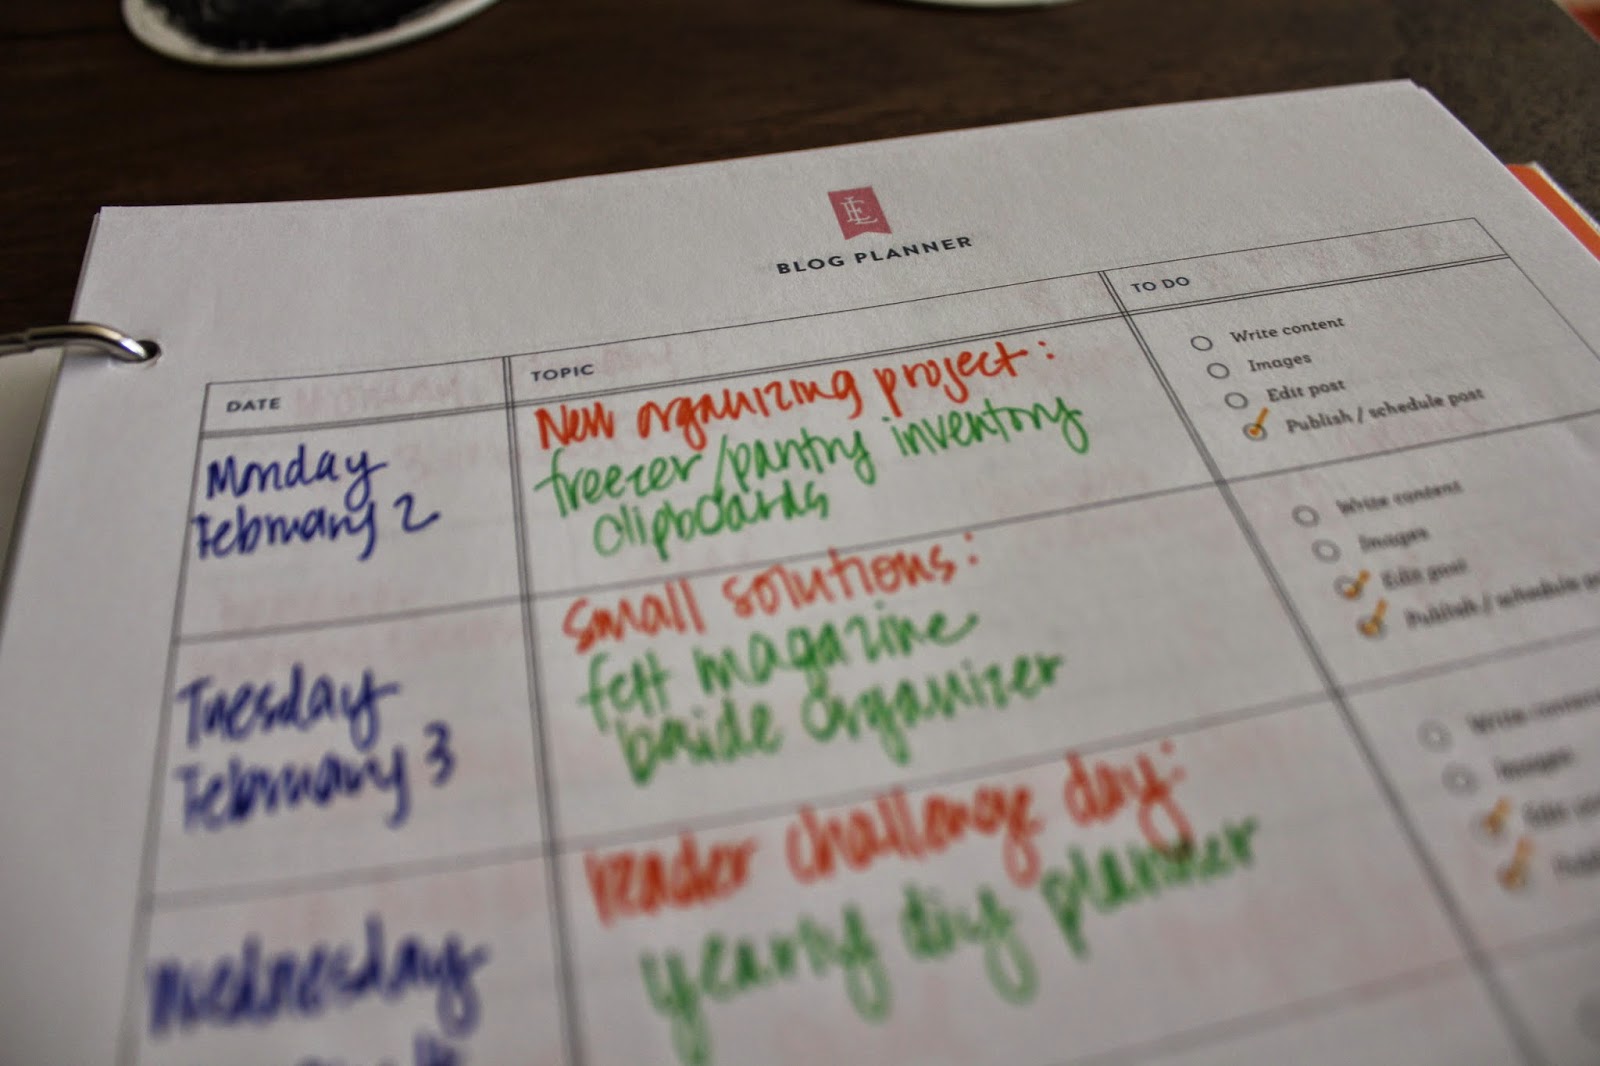 BLOG PLANNER
DATE
TOPIC
TO DO
Monday
February 2
New organizing project:
freezer/pantry inventory
clipboards
Write content
Images
Edit post
Publish / schedule post
Tuesday
February 3
small solutions:
felt magazine
organizer
Write content
Images
Edit post
Publish / schedule
Wednesday
reader challenge day:
yearly diy planner
Write content
Images
Edit